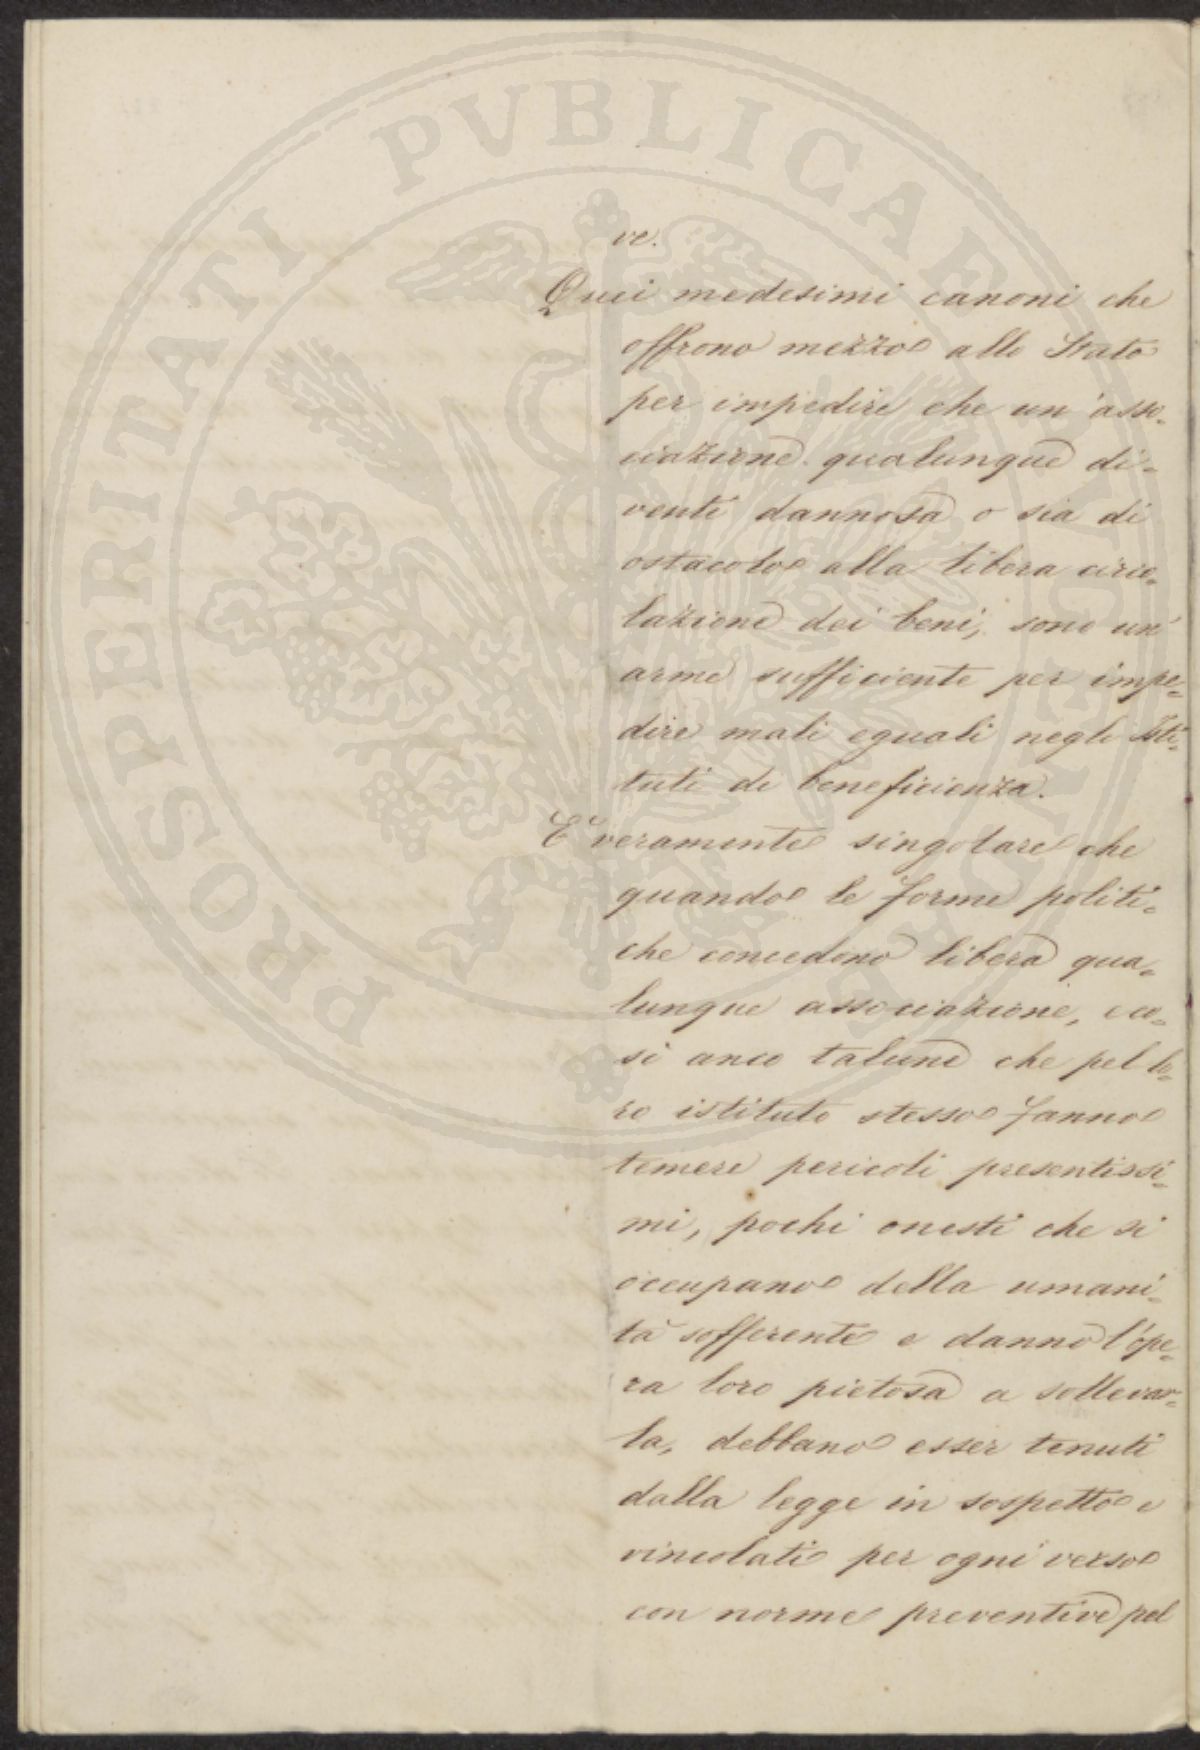 ve.
Quei medesimi canoni che
offrono mezzo allo Stato
per impedire che un'asso=
ciazione qualunque di=
venti dannosa o sia di
ostacolo alla libera circo=
lazione dei beni, sono un'
arme sufficiente per impe=
dire mali eguali negli Isti=
tuti di beneficienza.
E' veramente singolare che
quando le forme politi=
che concedono libera qua=
lunque associazione, e co=
sì anco talune che pel lo=
ro istituto stesso fanno
temere pericoli presentissi=
mi, pochi onesti che si
occupano della umani=
tà sofferente e danno l'ope=
ra loro pietosa a sollevar=
la, debbano esser tenuti
dalla legge in sospetto e
vincolati per ogni verso
con norme preventive pel
PROSPERITATI PVBLICAE